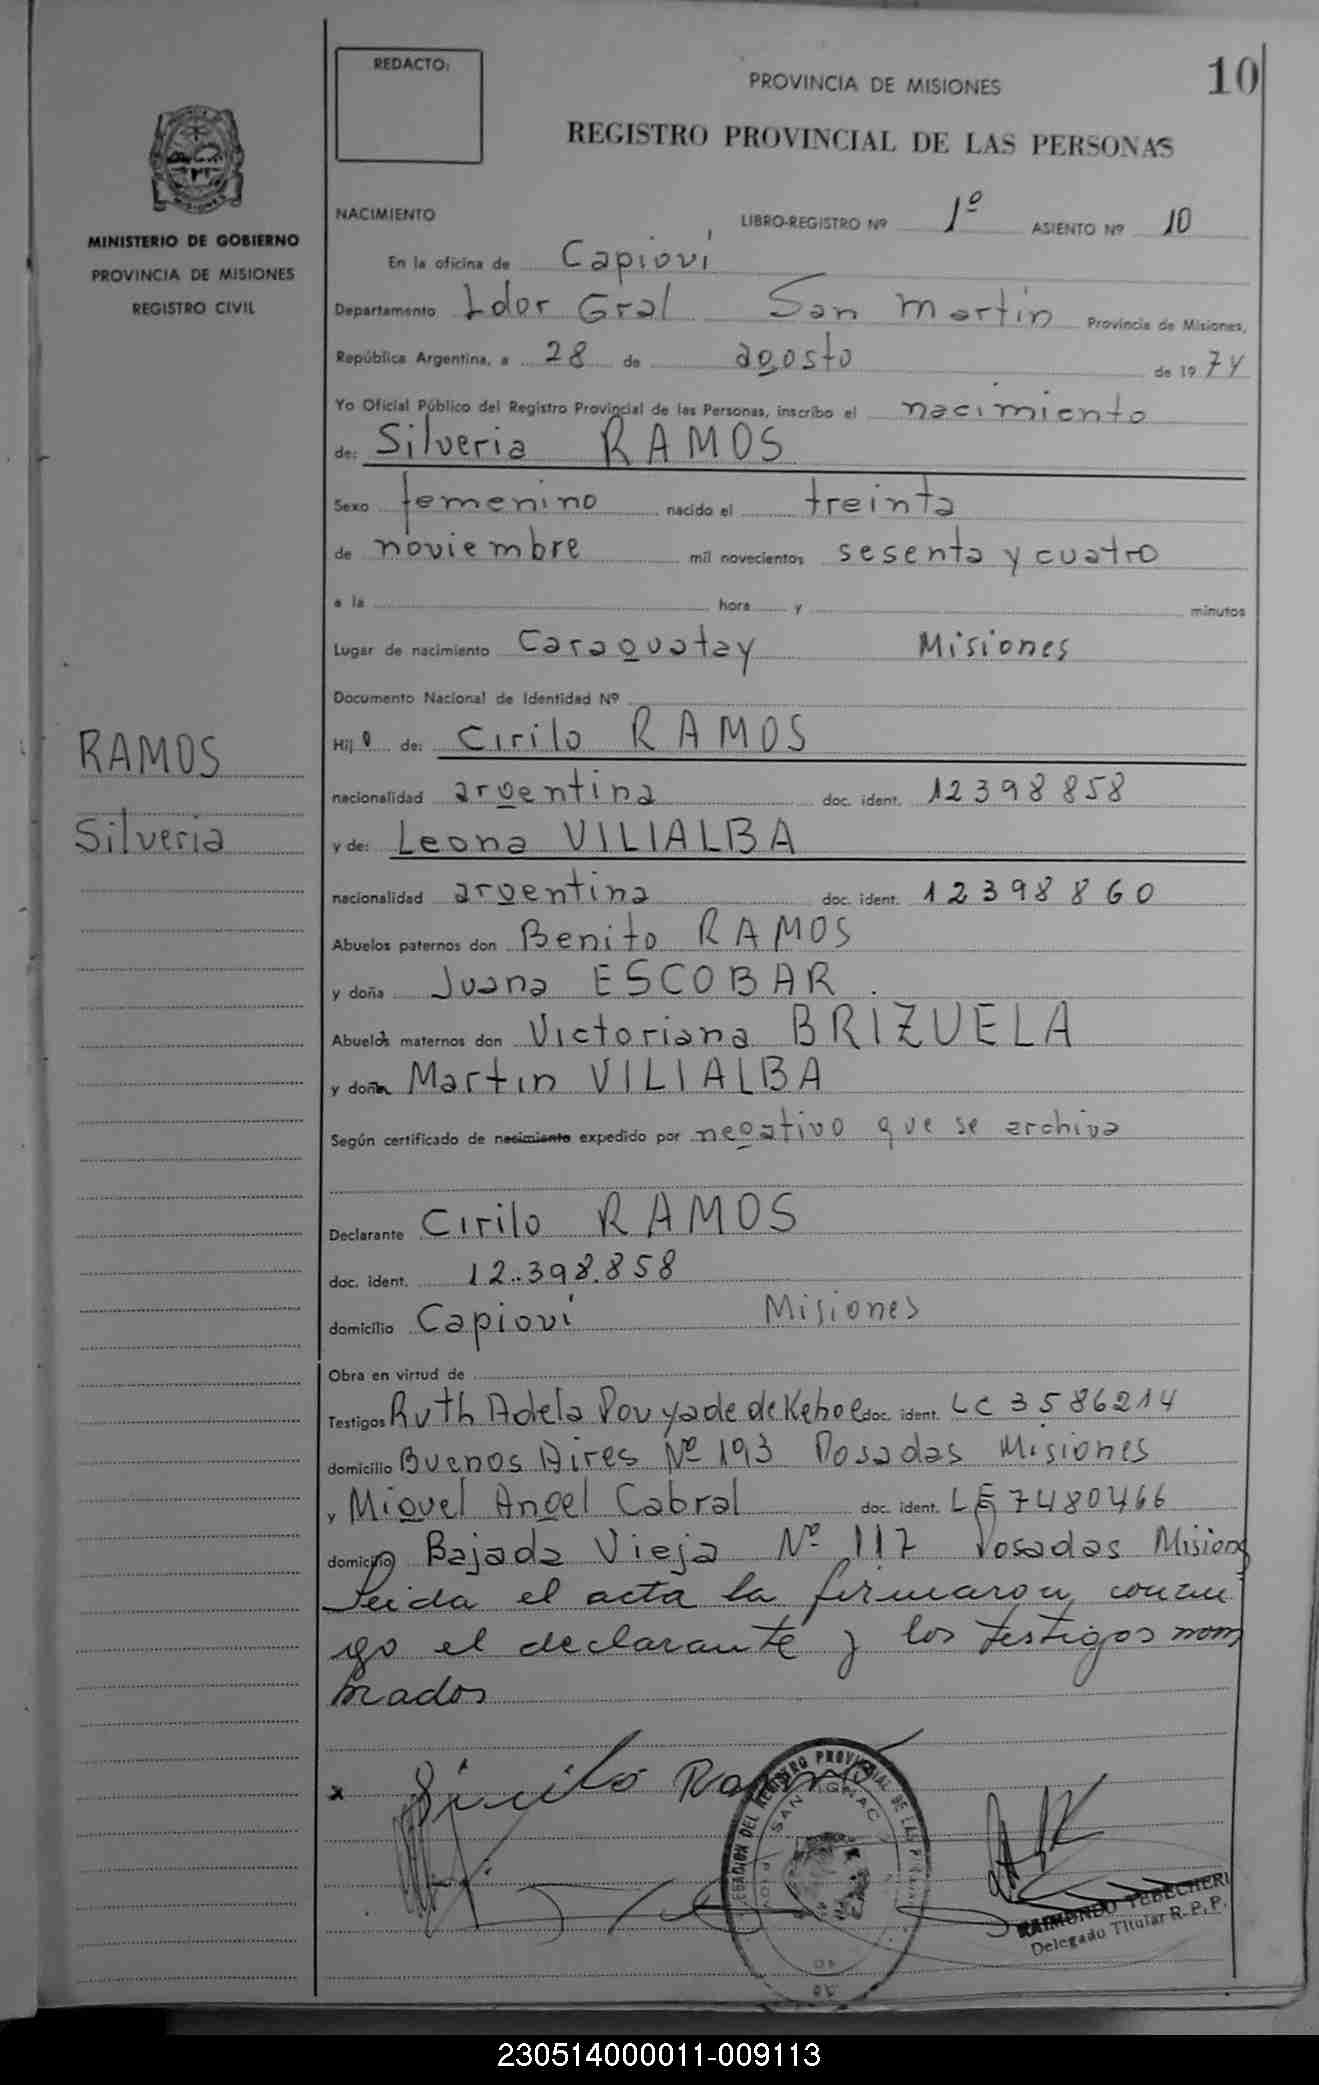 REDACTO:
PROVINCIA DE MISIONES
10
REGISTRO PROVINCIAL DE LAS PERSONAS
MINISTERIO DE GOBIERNO
PROVINCIA DE MISIONES
REGISTRO CIVIL
NACIMIENTO LIBRO-REGISTRO Nº 1º ASIENTO Nº 10
En la oficina de Capioví
Departamento Ldor Gral San Martín Provincia de Misiones,
República Argentina, a 28 de agosto de 1974
Yo Oficial Público del Registro Provincial de las Personas, inscribo el nacimiento
de: Silveria RAMOS
Sexo femenino nacido el treinta
de noviembre mil novecientos sesenta y cuatro
a la hora y minutos
Lugar de nacimiento Caraguatay Misiones
Documento Nacional de Identidad Nº
RAMOS
Silveria
Hij a de: Cirilo RAMOS
nacionalidad argentina doc. ident. 12398858
y de: Leona VILIALBA
nacionalidad argentina doc. ident. 12398860
Abuelos paternos don Benito RAMOS
y doña Juana ESCOBAR.
Abuelos maternos don Victoriana BRIZUELA
y don Martin VILIALBA
Según certificado de nacimiento expedido por negativo que se archiva
Declarante Cirilo RAMOS
doc. ident. 12.398.858
domicilio Capioví Misiones
Obra en virtud de
Testigos Ruth Adela Pouyade de Kehoe doc. ident. LC 3586214
domicilio Buenos Aires Nº 193 Posadas Misiones
y Miguel Angel Cabral doc. ident. LE 7480466
domicilio Bajada Vieja Nº 117 Posadas Misiones
Leida el acta la firmaron conmi
go el declarante y los testigos nom
brados
x Sirilo Ramos
SAN IGNACIO
RAIMUNDO YEBECHERI
Delegado Titular R. P. P.
230514000011-009113